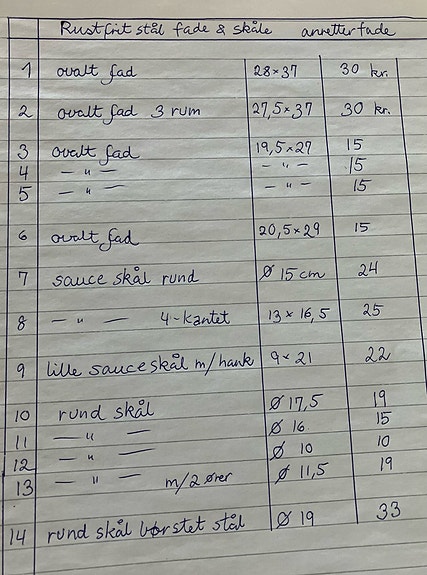 Rustfrit stål fade & skåle anretterfade
1 ovalt fad 28×37 30 kr.
2 ovalt fad 3 rum 27,5×37 30 kr.
3 ovalt fad 19,5×27 15
4 — „ — — „ — 15
5 — „ — — „ — 15
6 ovalt fad 20,5×29 15
7 sauce skål rund Ø 15 cm 24
8 — „ — 4-kantet 13 × 16,5 25
9 lille sauceskål m/hank 9×21 22
10 rund skål Ø 17,5 19
11 — „ — Ø 16 15
12 — „ — Ø 10 10
13 — „ — m/2 ører Ø 11,5 19
14 rund skål børstet stål Ø 19 33